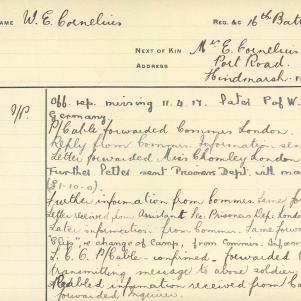 NAME W. E. Cornelius REG. &c 16th Batt
NEXT OF KIN Mr E. Cornelius
ADDRESS Port Road.
Hindmarsh.
Off. rep. missing 11.4.17. later P of W.
Germany.
P/Cable forwarded Commrs London.
Reply from Commrs. Information sent
Letter forwarded Miss Chomley London
Further Letter sent Prisoners Dept. with
Further information from Commrs. Same for
Letter received from Assistant Sec. Prisoners Dep. London
Later information from Commr. Same forw
Slip re change of Camp, from Commrs.
P/Cable - confirmed - forwarded
transmitting message to above soldier
Cabled information received from
forwarded Enquirer.